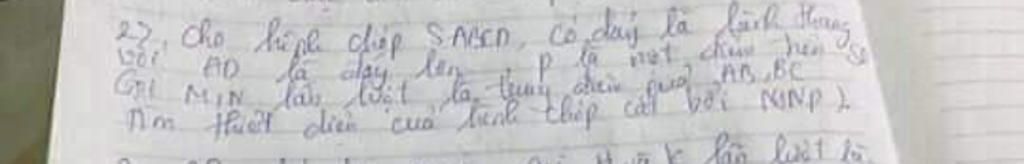 27, Cho hình chóp SABCD, có đáy là hình thang
với AD là đáy lớn, P là một điểm trên SD
Gọi M, N lần lượt là trung điểm của AB, BC
Tìm thiết diện của hình chóp cắt bởi MNP).
lần lượt là